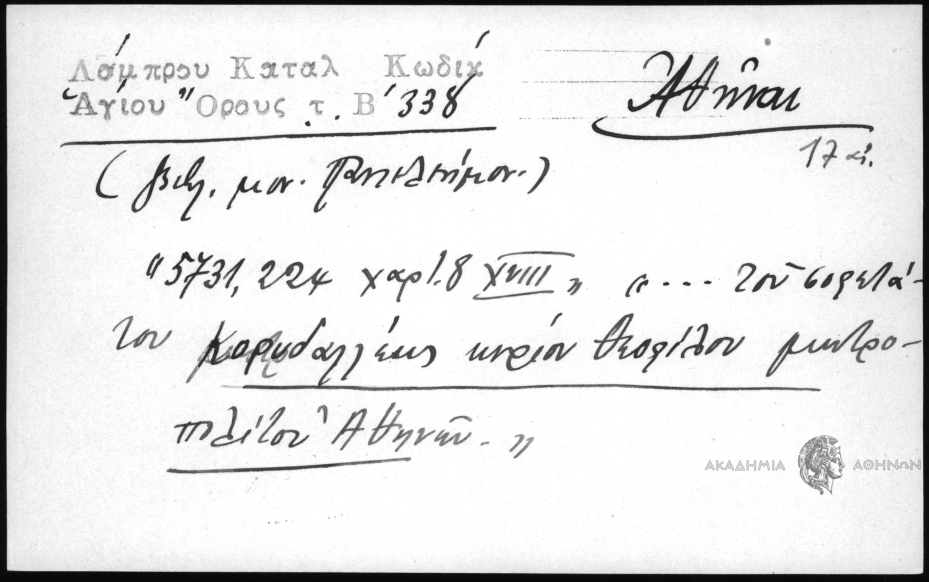 Λάμπρου Καταλ Κωδίκ
Ἁγίου Ὄρους τ. Β΄ 338
Ἀθῆναι
17 αἰ.
(Βιβλ. μον. Παντελεήμον.)
"5731, 224 χαρτ. 8 XVIII" "... τοῦ σοφωτά-
του Κορυδαλλέως κυρίου Θεοφίλου μητρο-
πολίτου Ἀθηνῶν."
ΑΚΑΔΗΜΙΑ ΑΘΗΝΩΝ